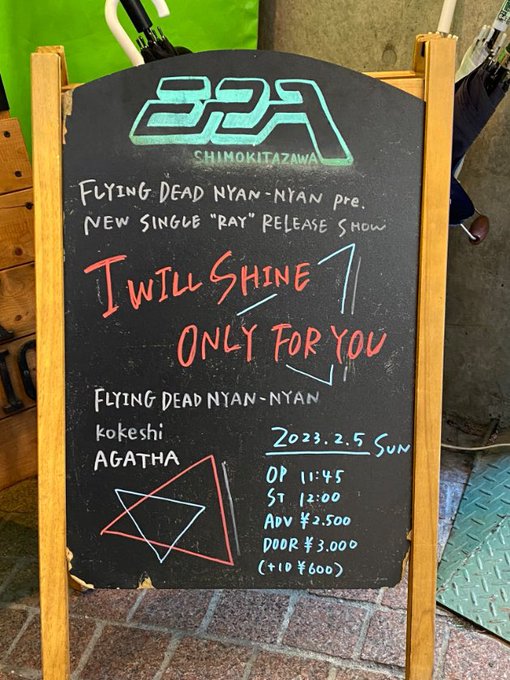 ERA
SHIMOKITAZAWA
FLYING DEAD NYAN-NYAN pre.
NEW SINGLE "RAY" RELEASE SHOW
I WILL SHINE
ONLY FOR YOU
FLYING DEAD NYAN-NYAN
kokeshi
AGATHA
2023.2.5 SUN
OP 11:45
ST 12:00
ADV ¥2.500
DOOR ¥3.000
(+1D ¥600)